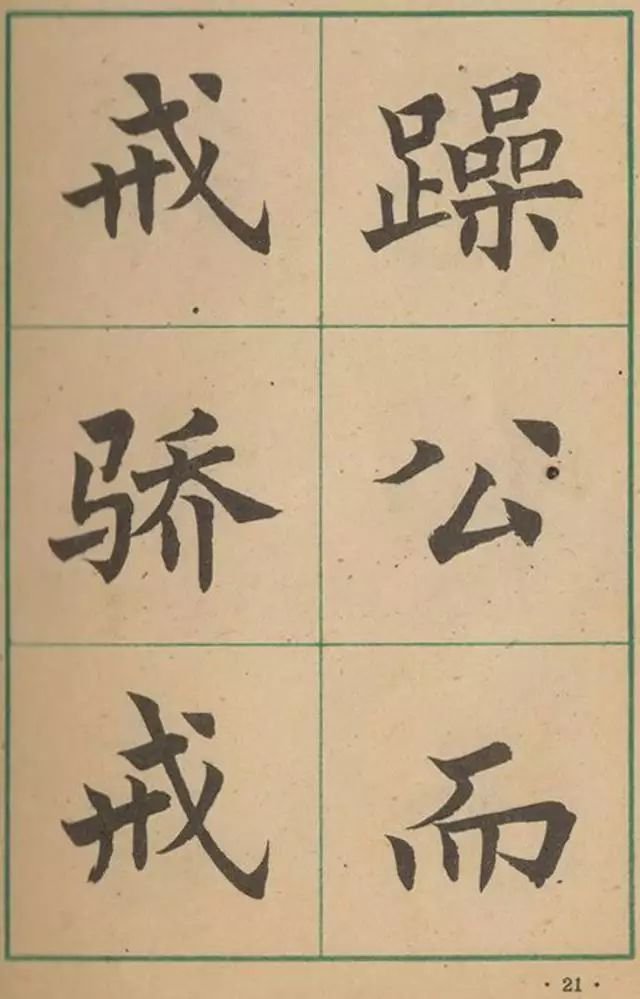 躁公而
戒骄戒
· 21 ·